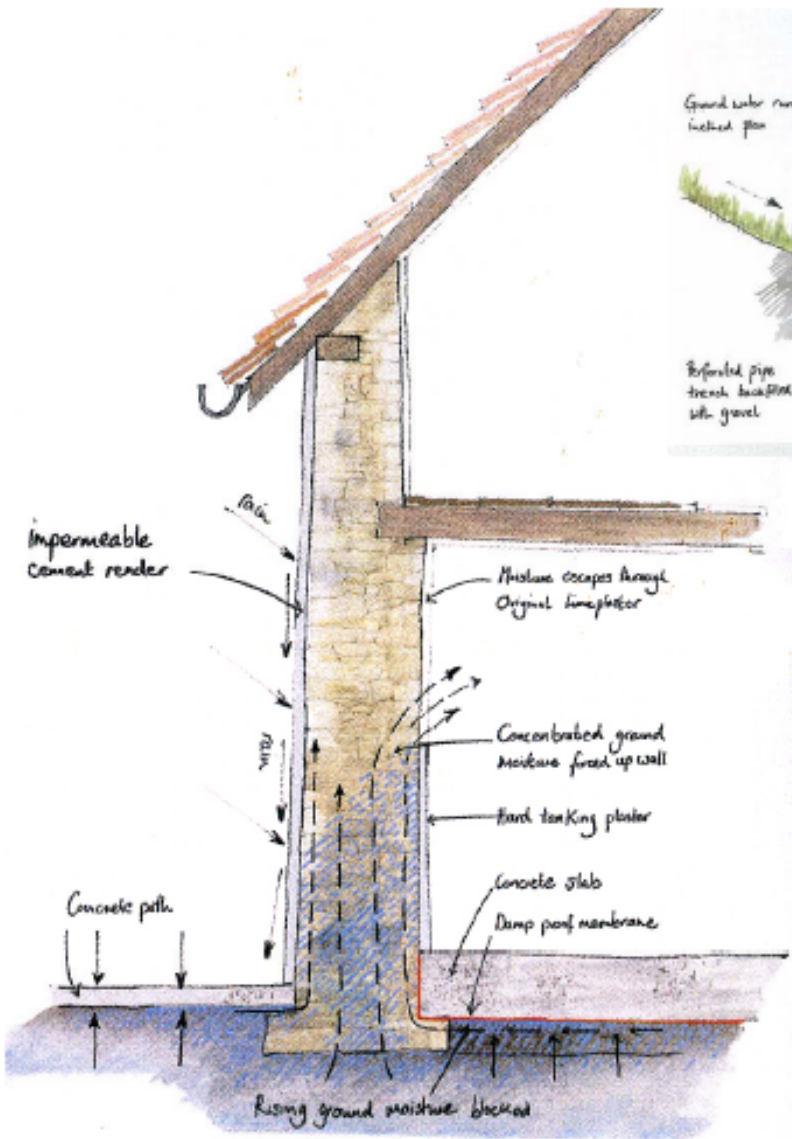 Ground water run
inclined plan
Perforated pipe
trench backfilled
with gravel
rain
impermeable
cement render
Moisture escapes through
Original limeplaster
rain
Concentrated ground
moisture forced up wall
Hard tanking plaster
Concrete slab
Damp proof membrane
Concrete path
Rising ground moisture blocked